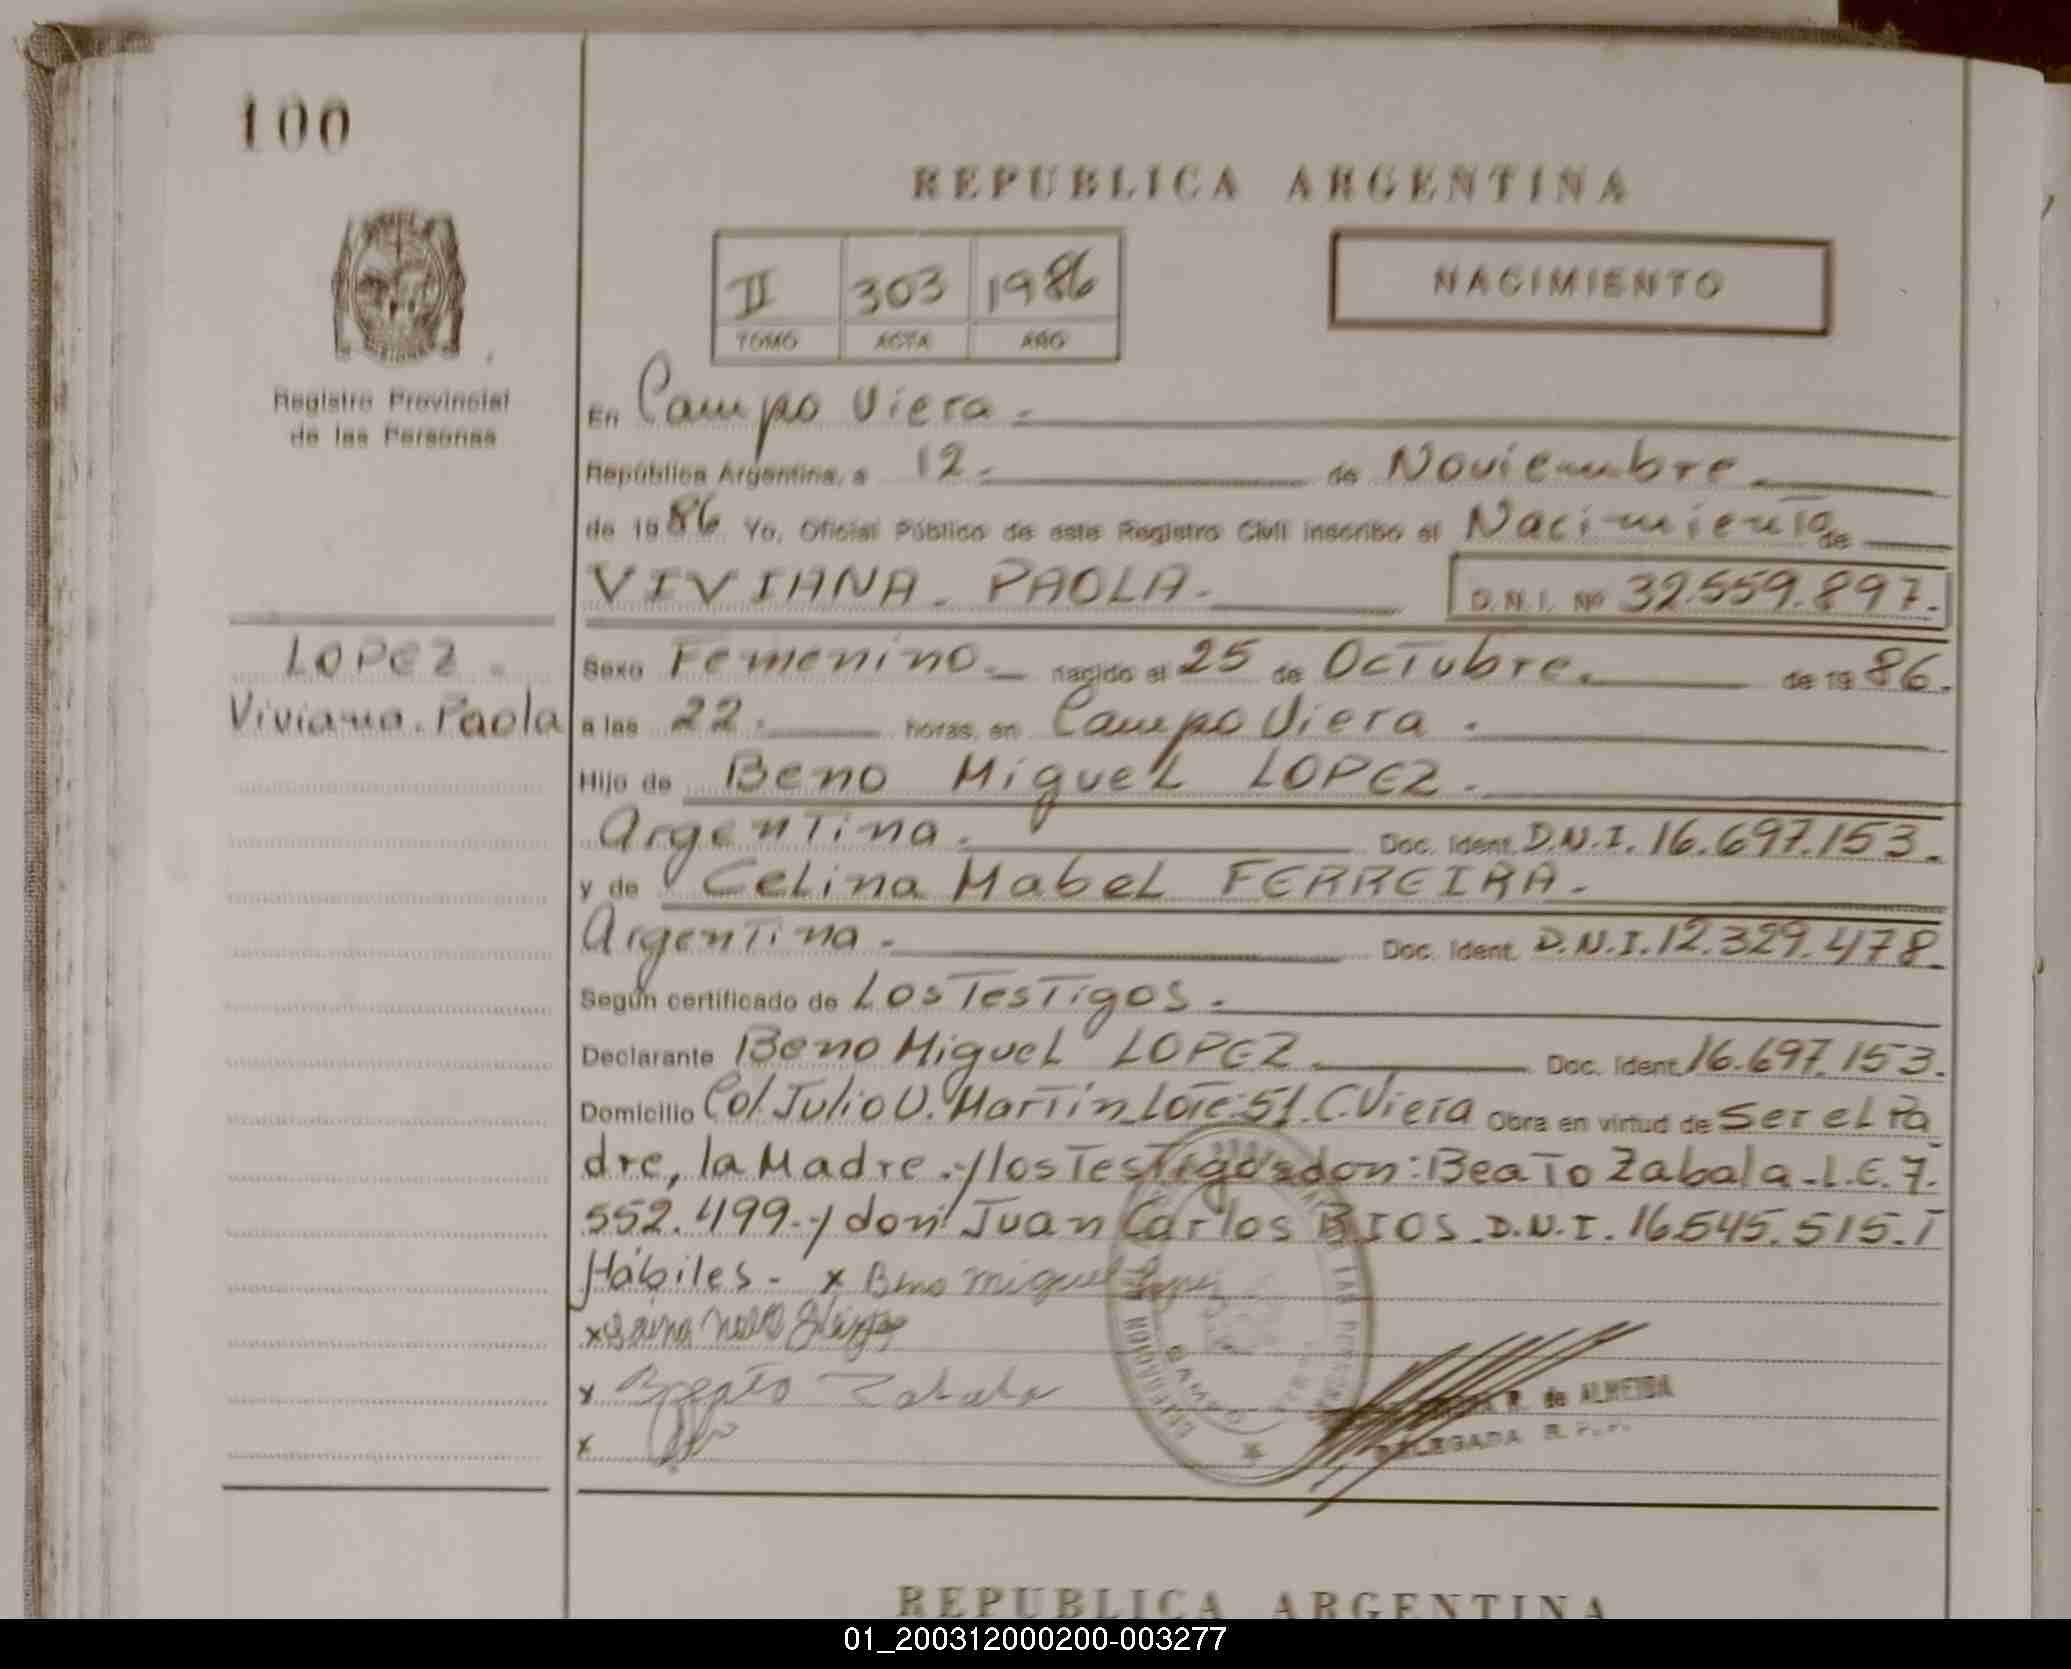 100
REPUBLICA ARGENTINA
II 303 1986
TOMO ACTA AÑO
NACIMIENTO
Registro Provincial
de las Personas
En Campo Viera.
República Argentina, a 12. de Noviembre
de 1986 Yo, Oficial Público de este Registro Civil inscribo el Nacimiento de
VIVIANA. PAOLA. D.N.I. Nº 32.559.897.
LOPEZ.
Viviana. Paola
Sexo Femenino. nacido el 25 de Octubre. de 1986.
a las 22. horas, en Campo Viera.
Hijo de Beno Miguel LOPEZ.
Argentina. Doc. Ident. D.N.I. 16.697.153.
y de Celina Mabel FERREIRA.
Argentina. Doc. Ident. D.N.I. 12.329.478.
Según certificado de Los Testigos.
Declarante Beno Miguel LOPEZ Doc. Ident. 16.697.153.
Domicilio Col. Julio U. Martin Lote: 51. C. Viera Obra en virtud de Ser el Pa
dre, la Madre. y los Testigos don: Beato Zabala. L.E. 7.
552.499. y don Juan Carlos RIOS. D.N.I. 16.545.515. T
Hábiles. x Beno Miguel
x
x Beato Zabala
x
R. de ALMEIDA
DELEGADA R.P.P.
REPUBLICA ARGENTINA
01_200312000200-003277